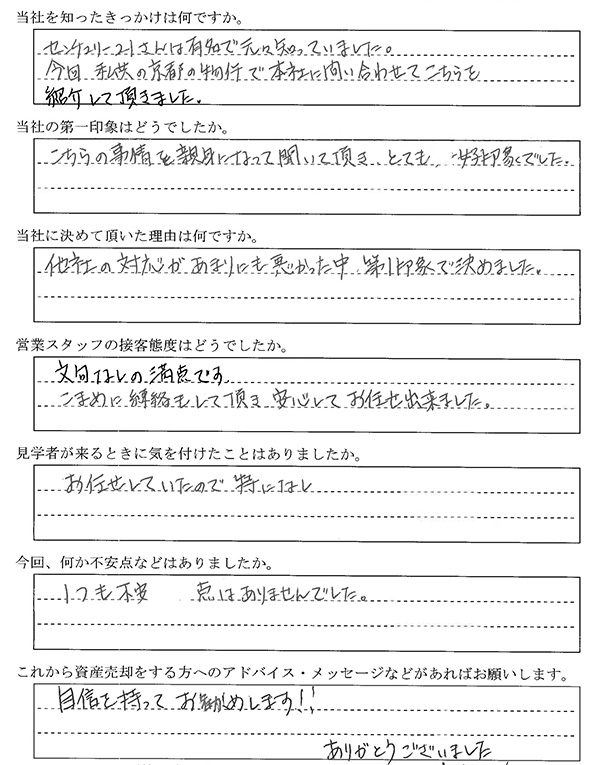 当社を知ったきっかけは何ですか。
センチュリー21さんは有名で元々知っていました。
今回 私共の京都の物件で本社に問い合わせてこちらを
紹介して頂きました。
当社の第一印象はどうでしたか。
こちらの事情を親身になって聞いて頂き とても、好印象でした。
当社に決めて頂いた理由は何ですか。
他社の対応があまりにも悪かった中、第1印象で決めました。
営業スタッフの接客態度はどうでしたか。
文句なしの満点です
こまめに連絡もして頂き 安心してお任せ出来ました。
見学者が来るときに気を付けたことはありましたか。
お任せしていたので 特になし
今回、何か不安点などはありましたか。
1つも不安 点はありませんでした。
これから資産売却をする方へのアドバイス・メッセージなどがあればお願いします。
自信を持って お勧めします!!
ありがとうございました